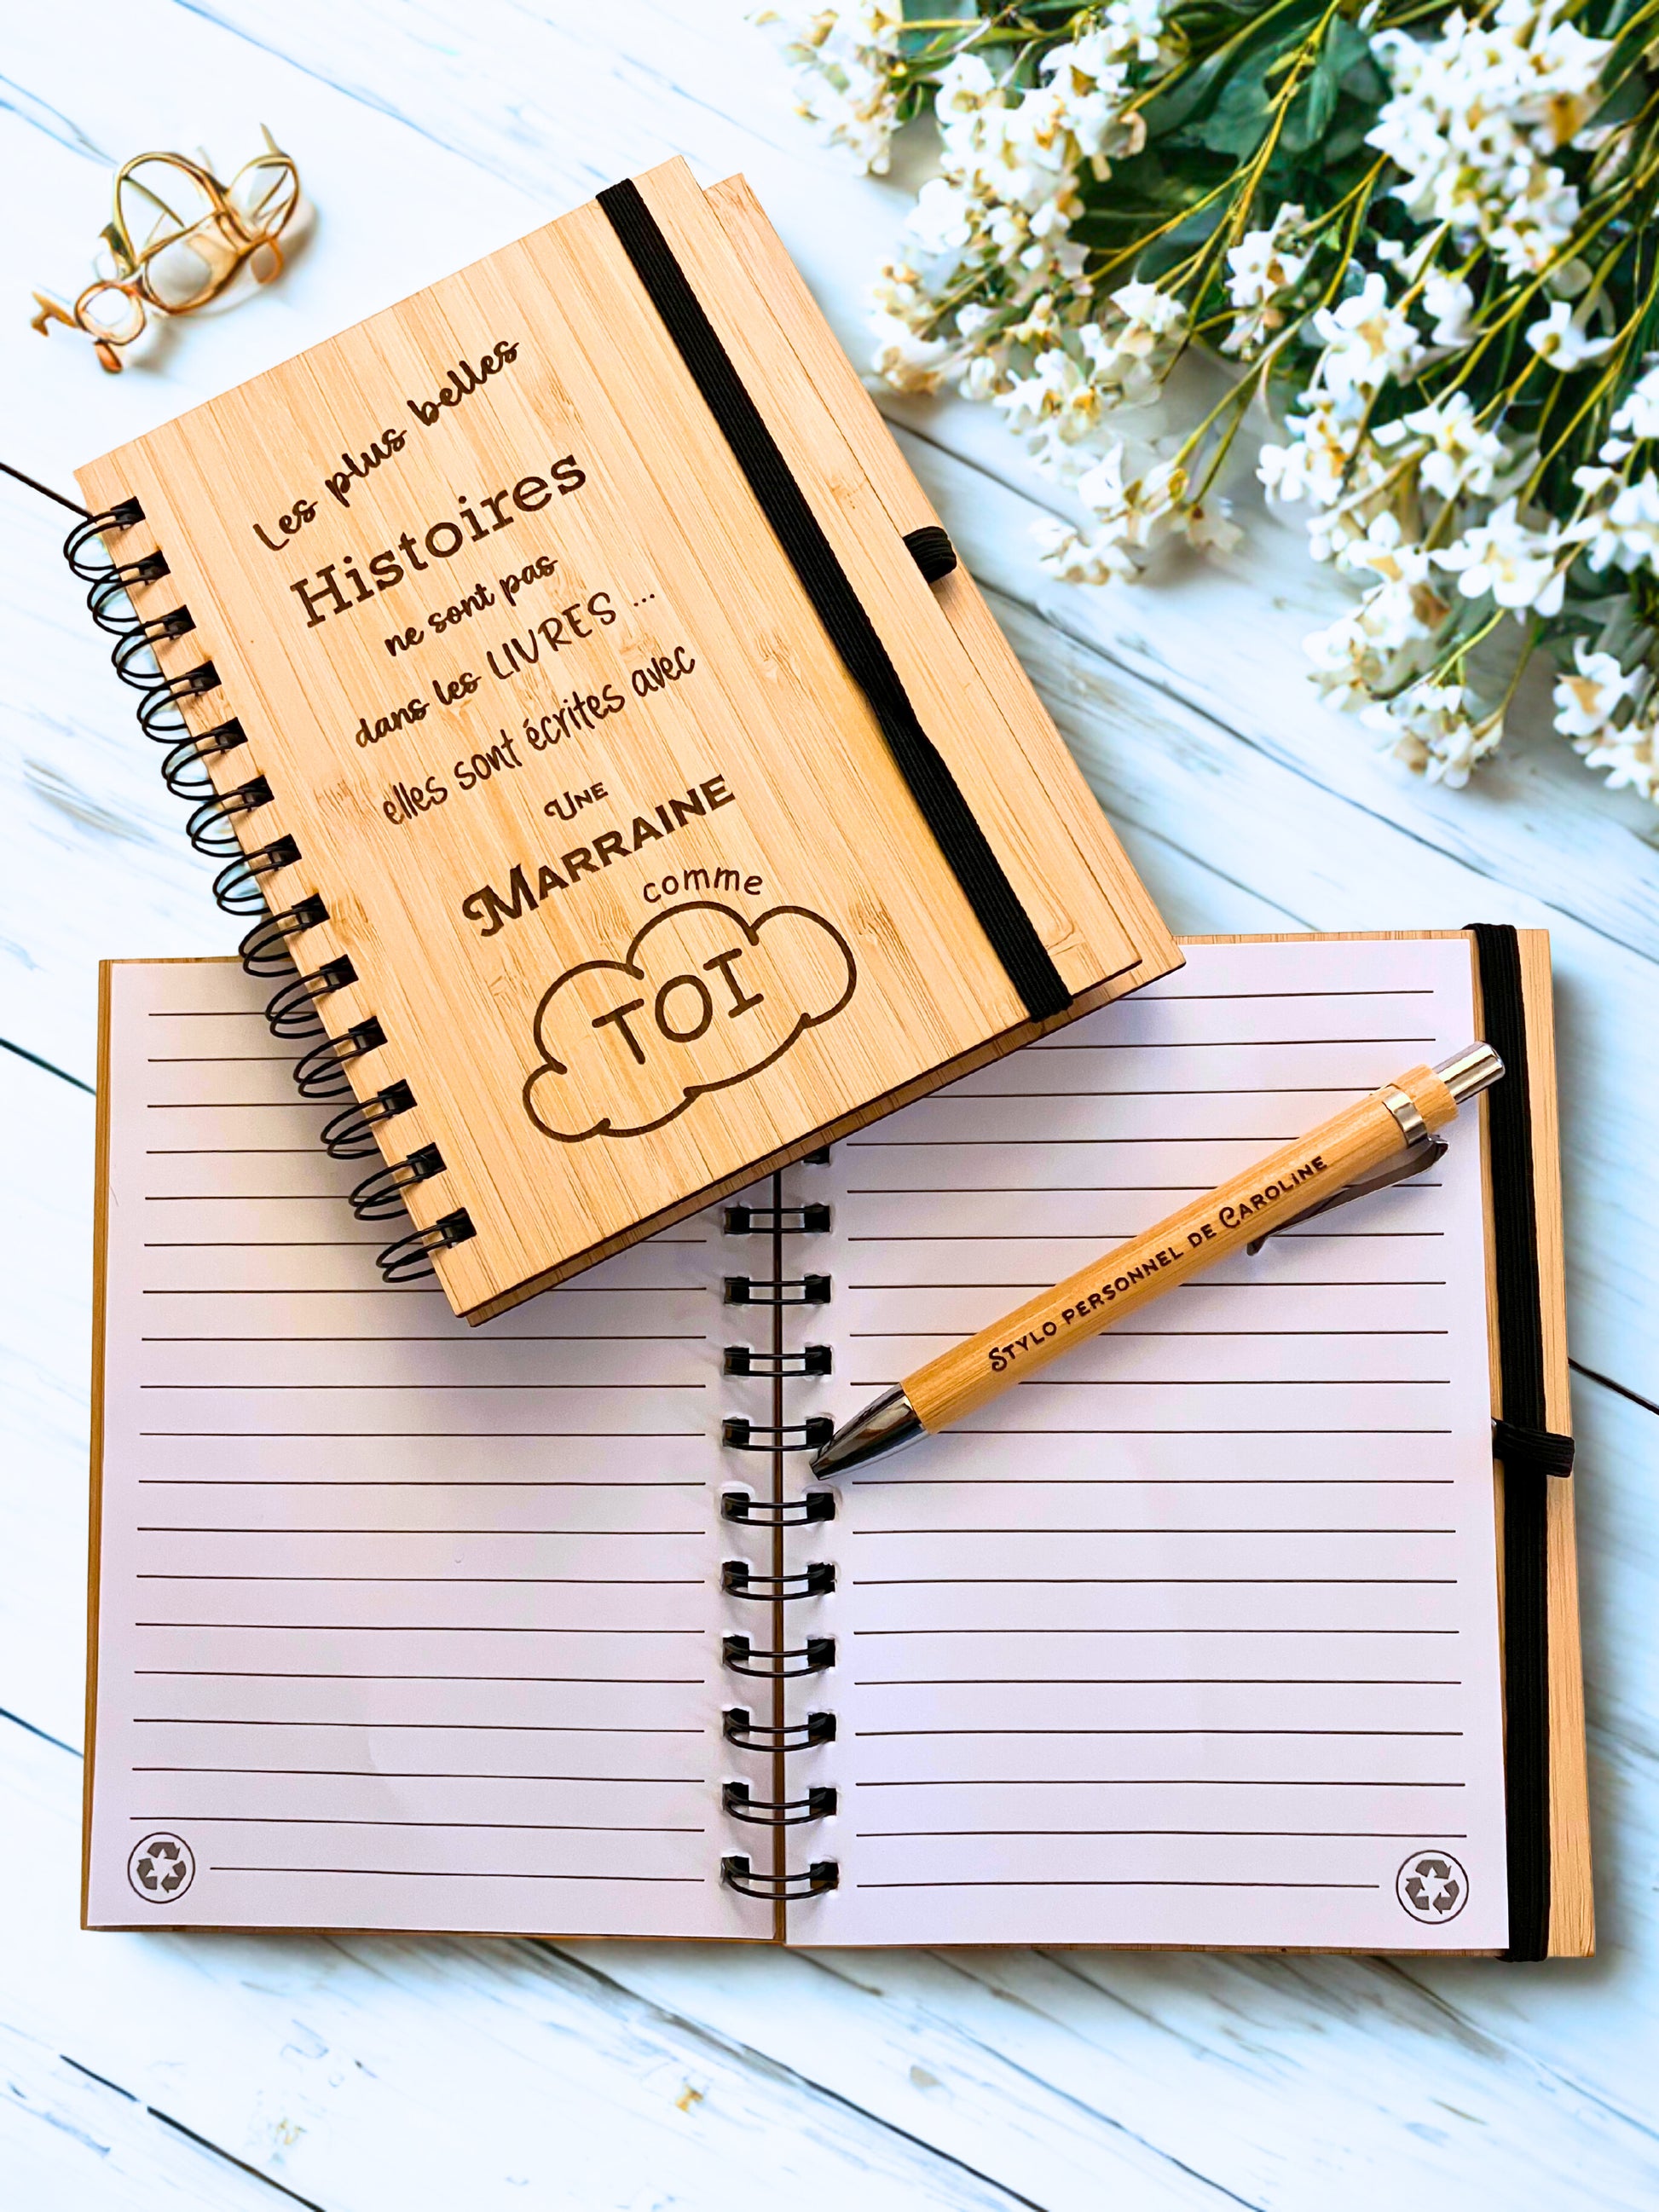 Les plus belles
Histoires
ne sont pas
dans les LIVRES ...
elles sont écrites avec
UNE
MARRAINE
comme
TOI
STYLO PERSONNEL DE CAROLINE